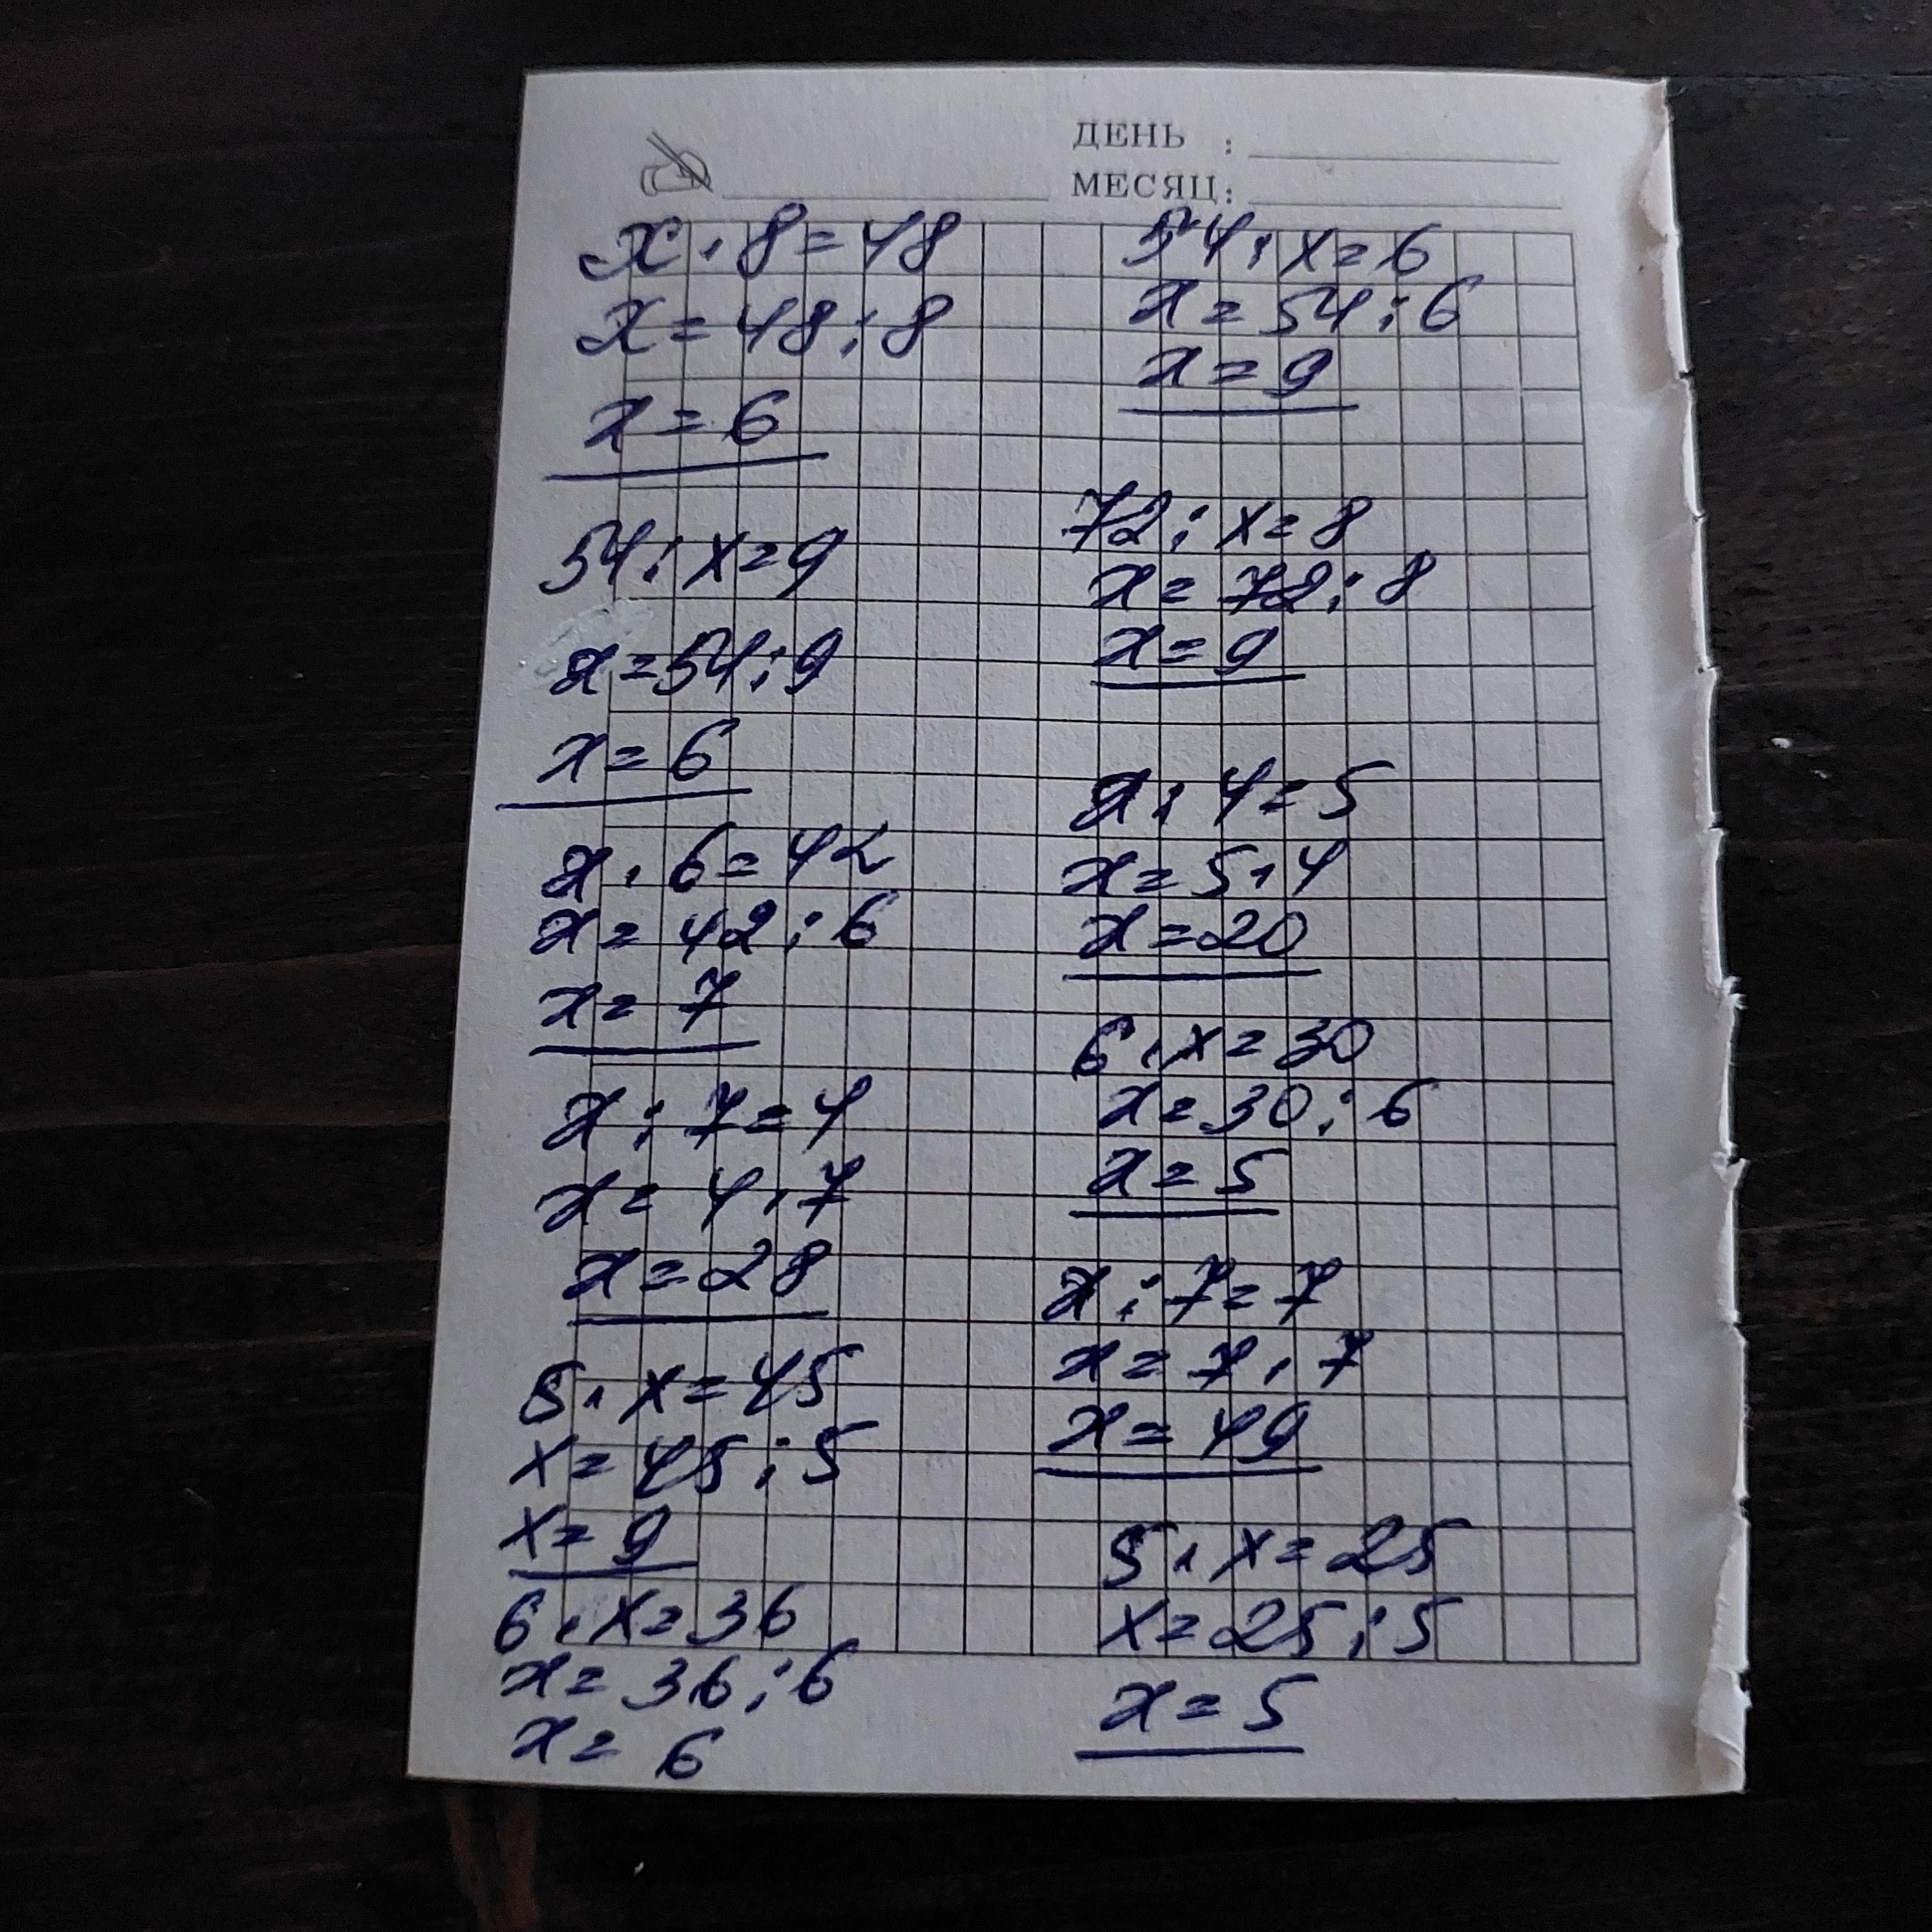 ДЕНЬ :
МЕСЯЦ:
x · 8 = 48
x = 48 : 8
x = 6
54 : x = 9
x = 54 : 9
x = 6
x · 6 = 42
x = 42 : 6
x = 7
x : 7 = 4
x = 4 · 7
x = 28
5 · x = 45
x = 45 : 5
x = 9
6 · x = 36
x = 36 : 6
x = 6
54 : x = 6
x = 54 : 6
x = 9
72 : x = 8
x = 72 : 8
x = 9
x : 4 = 5
x = 5 · 4
x = 20
6 · x = 30
x = 30 : 6
x = 5
x : 7 = 7
x = 7 · 7
x = 49
5 · x = 25
x = 25 : 5
x = 5